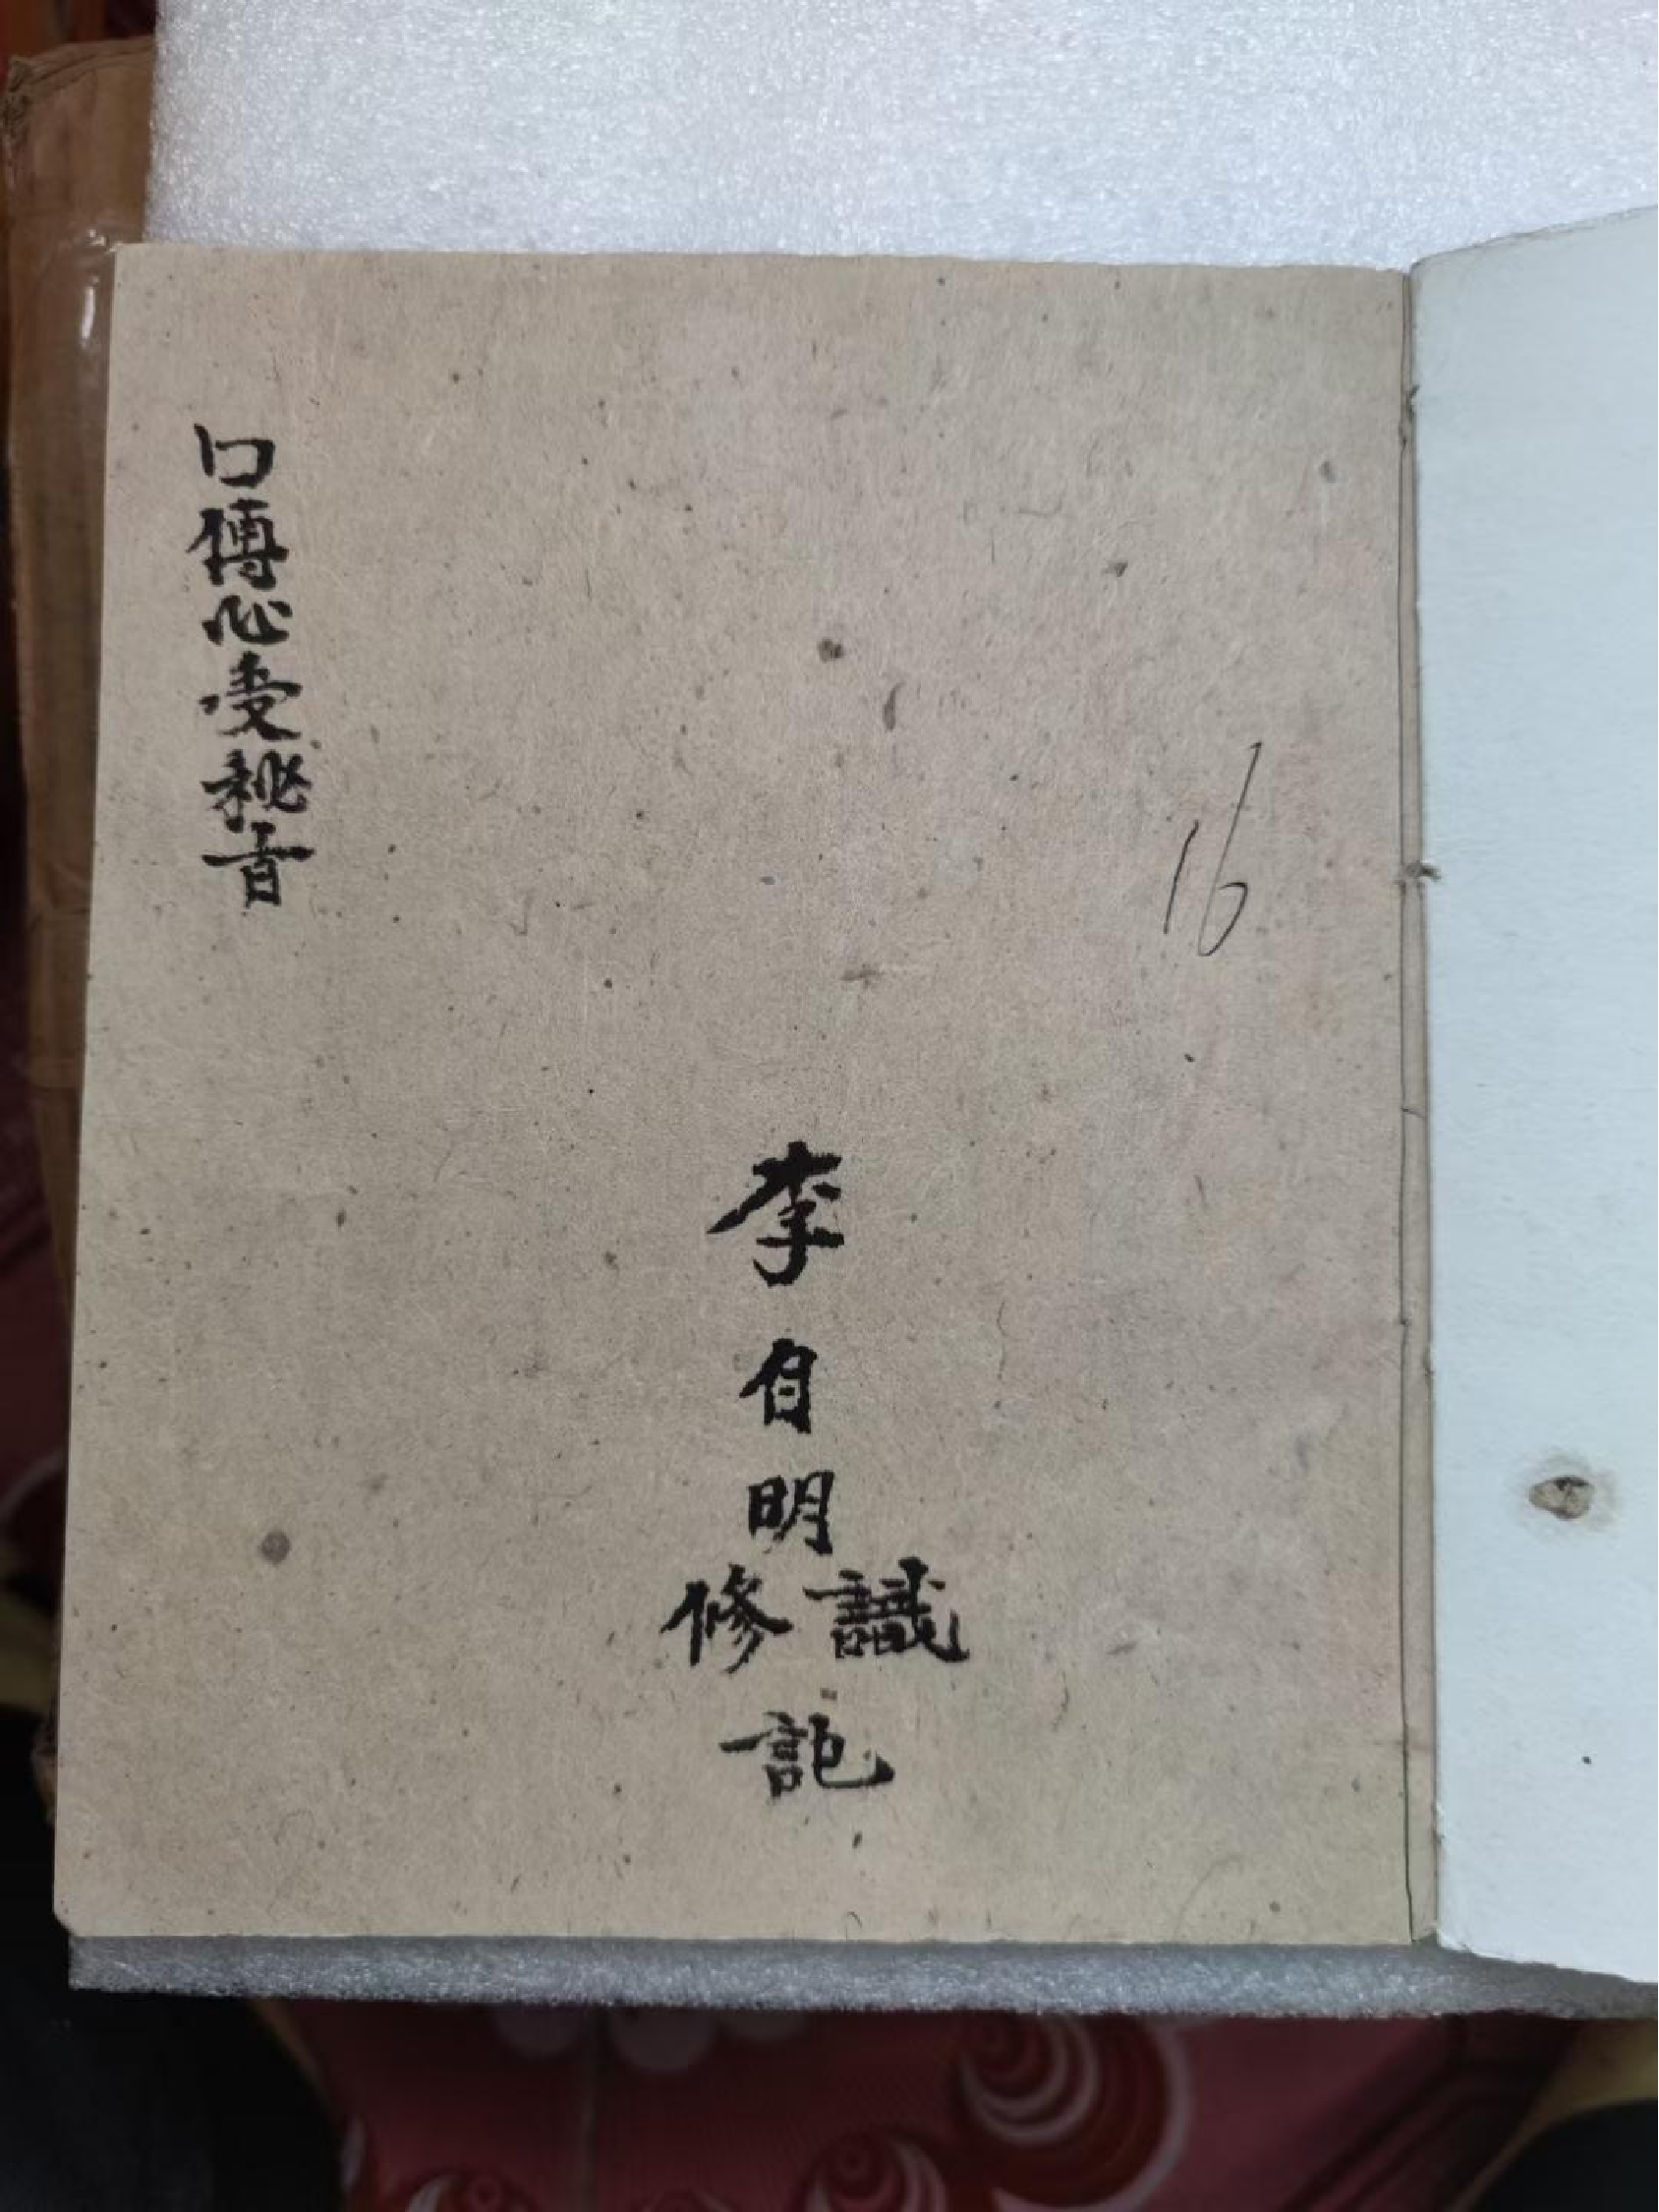 16
李自明
識修
記
口傳心受秘旨